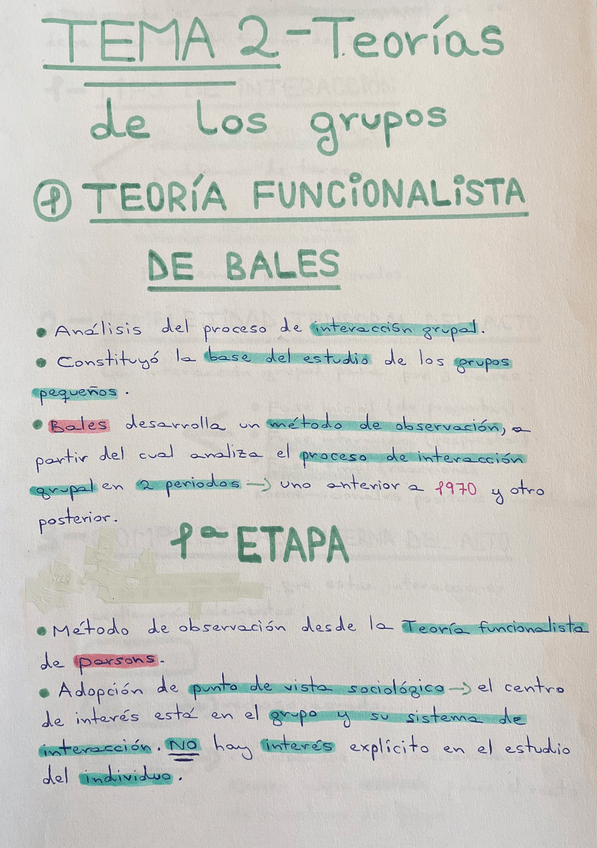 TEMA 2 - Teorías
de los grupos
① TEORÍA FUNCIONALISTA
DE BALES
• Análisis del proceso de interacción grupal.
• Constituyó la base del estudio de los grupos
pequeños.
• Bales desarrolla un método de observación, a
partir del cual analiza el proceso de interacción
grupal en 2 periodos → uno anterior a 1970 y otro
posterior.
1ª ETAPA
• Método de observación desde la Teoría funcionalista
de parsons.
• Adopción de punto de vista sociológico → el centro
de interés está en el grupo y su sistema de
interacción. NO hay interés explícito en el estudio
del individuo.